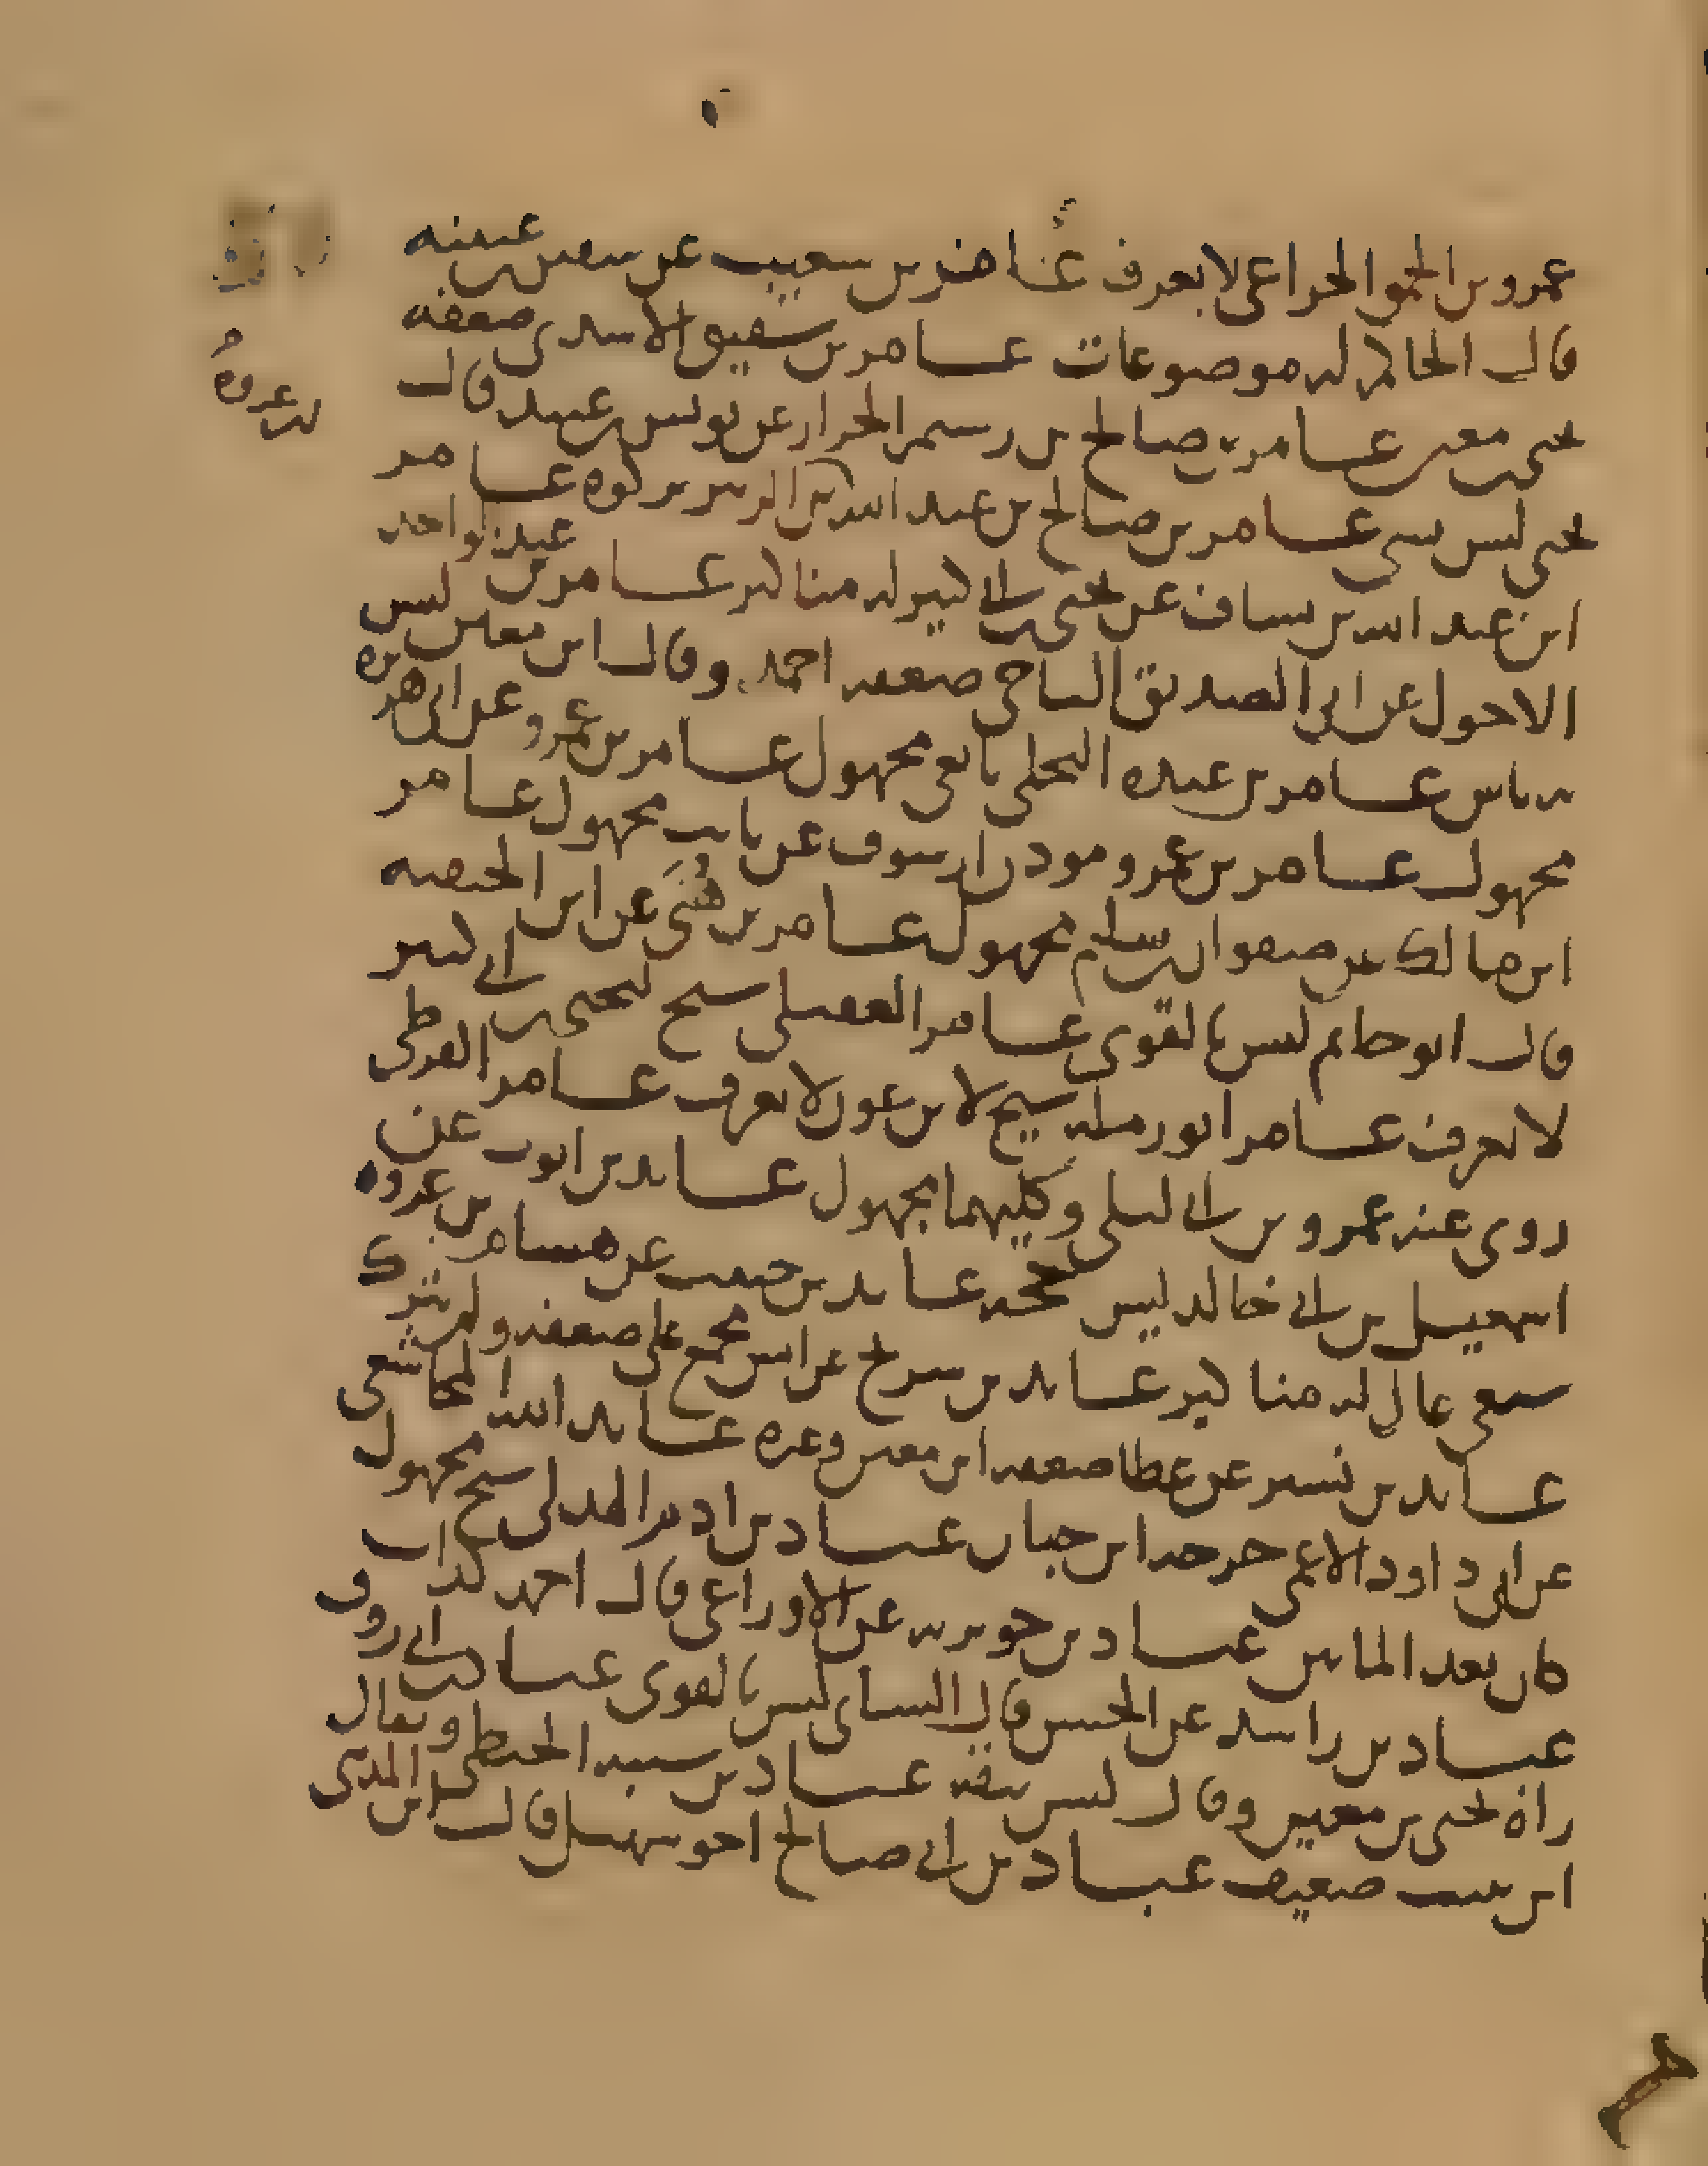 عمرو بن الحمق الخزاعي لا يعرف عاضد بن شعيب عن سفين بن عيينه
قال الحاكم له موضوعات عامر بن شقيق الاسدي ضعفه
يحيى بن معين عامر بن صالح بن رستم الخزاز عن يونس بن عبيد قال
يحيى ليس بشي عامر بن صالح بن عبد الله بن الزبير تركوه عامر
ابن عبد الله بن يساف عن يحيى بن ابي كثير له مناكير عامر بن عبد الواحد
الاحول عن ابي الصديق الناجي ضعفه احمد وقال ابن معين ليس
به باس عامر بن عبده البجلي تابعي مجهول عامر بن عمرو عن ابي هريره
مجهول عامر بن عمرو موذن عن ثابت مجهول عامر
ابن مالك عن صفوان بن سليم مجهول عامر بن هني عن ابن الحنفيه
قال ابو حاتم ليس بالقوي عامر العقيلي شيخ ليحيى بن ابي كثير
لا يعرف عامر ابو رمله شيخ لابن عون لا يعرف عامر القرظي
روى عنه عمرو بن ابي ليلى وكليهما مجهول عايد بن ايوب عن
اسمعيل بن ابي خالد ليس بحجه عايد بن حبيب عن هشام بن عروه
شيعي غال له مناكير عايد بن شريح عن انس مجمع على ضعفه ولم يترك
عايد بن نسير عن عطا ضعفه ابن معين وغيره عايد الله المجاشعي
عن ابي داود الاعمى جرحه ابن حبان عباد بن الهذلي شيخ مجهول
كان بعد المايتين عباد بن جويريه عن الاوزاعي قال احمد كذاب
عباد بن راشد عن الحسن قال النساي ليس بالقوي عباد بن ابي روق
راه يحيى بن معين وقال ليس بثقه عباد بن شيبه الحبطي ويقال
ابن شيب ضعيف عباد بن ابي صالح اخو سهيل قال ابن المديني